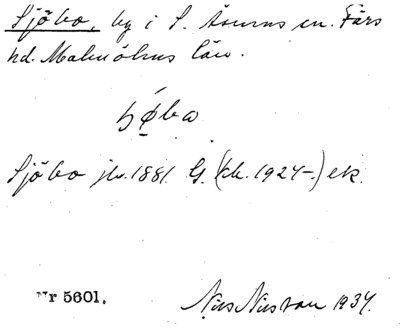 Sjöbo, by i S. Åsums sn. Färs
hd. Malmöhus län.
Sjöbo jvs. 1881. G. (kk. 1924-.) ek.
Nr 5601.
Nils Nilsson 1934.